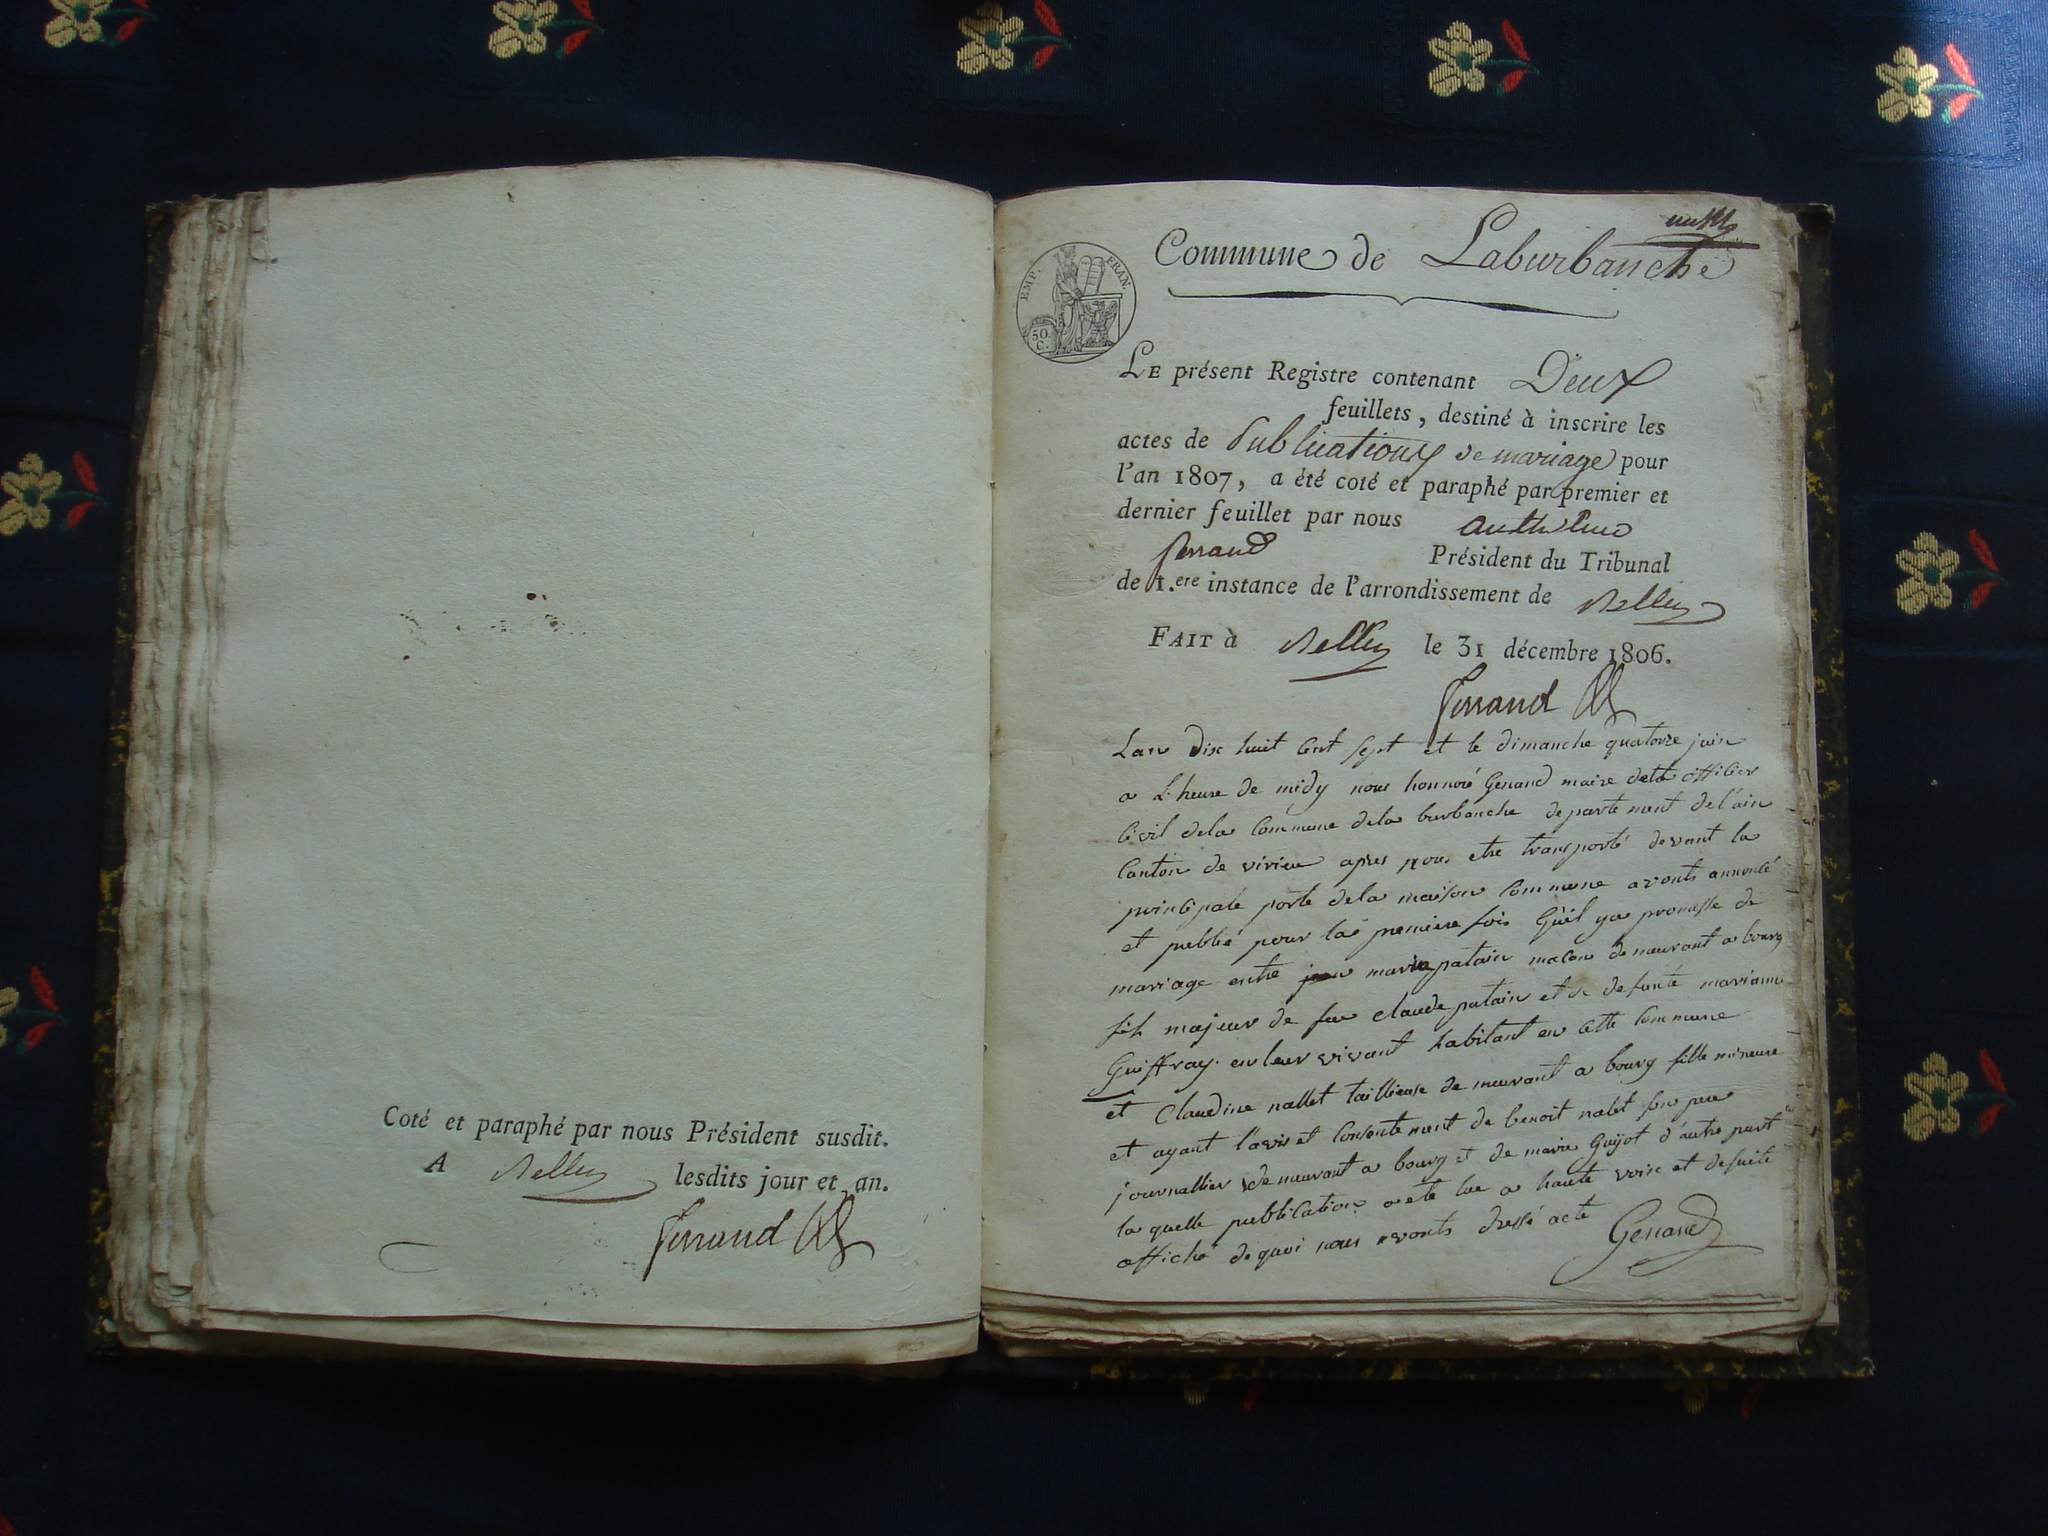 Coté et paraphé par nous Président susdit.
A Belley lesdits jour et an.
Ferrand
Commune de Laburbanche
EMP. FRAN.
50
C.
LE présent Registre contenant Deux
feuillets, destiné à inscrire les
actes de Publications de mariage pour
l'an 1807, a été coté et paraphé par premier et
dernier feuillet par nous Anthelme
ferrand Président du Tribunal
de 1.ere instance de l'arrondissement de Belley
FAIT à Belley le 31 décembre 1806.
Ferrand
Lan dix huit Cent Sept et le dimanche quatorze juin
a L'heure de midy nous honnoré Genand maire officier
Civil dela Commune dela burbanche departement de l'ain
Canton de virieu apres nous etre transporté devant la
principale porte dela maison Commune avonts annoncé
et publié pour la premiere fois Qu'il ya promesse de
mariage entre marin patain macon demeurant a bourg
fils majeur de feu claude patain et de defunte marianne
Guiffray en leur vivant habitant en cette Commune
et Claudine nallet taillieuse demeurant a bourg fille mineure
et ayant l'avis et Consentement de benoit nalet son pere
journallier demeurant a bourg et de marie Guijot d'autre part
la quelle publication a ete lue a haute voix et desuite
affiché de quoi nous avonts dressé acte Genand